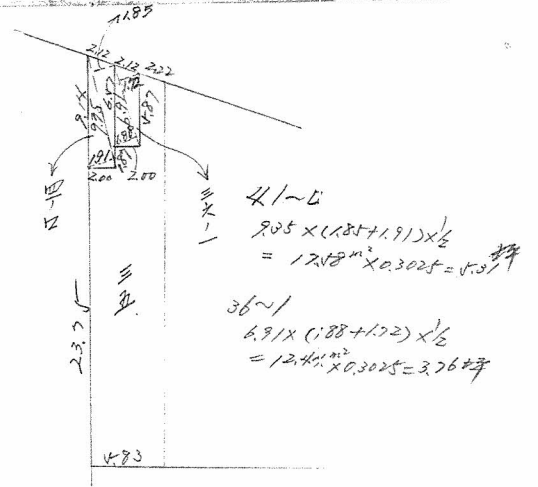 1.85
2.12 2.12 2.22
9.14
9.35
6.87
6.91
1.72
5.87
1.88
1.91
1.87
2.00 2.00
三六一一
三五
23.75
5.83
41~5
9.35×(1.85+1.91)×1/2
=17.58m²×0.3025=5.31坪
36~1
6.91×(1.88+1.72)×1/2
=12.4m²×0.3025=3.76坪